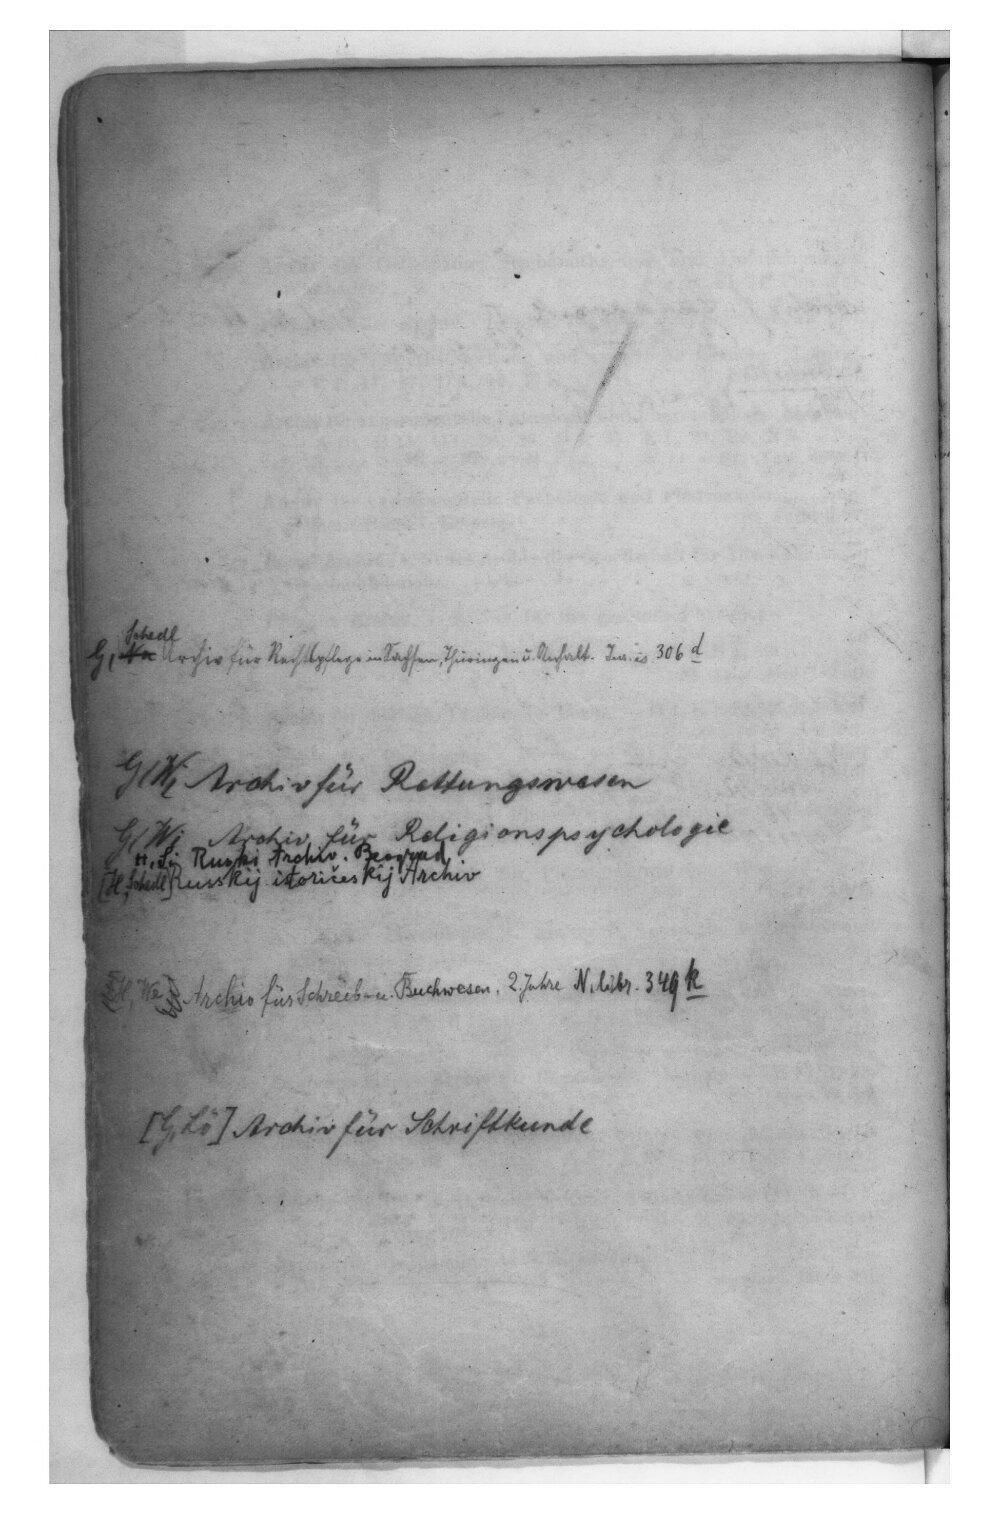 Schedl
G, Archiv für Rechtspflege in Sachsen, Thüringen u. Anhalt. Jur. is 306 d
G, Wi Archiv für Rettungswesen
G, Wi Archiv für Religionspsychologie
H, Ruski Archiv. Beograd
[H, Schedl] Russkij istoričeskij Archiv
[H, We] Archiv für Schreib- u. Buchwesen. 2. Jahre N. libr. 349 k
[G, Lö] Archiv für Schriftkunde